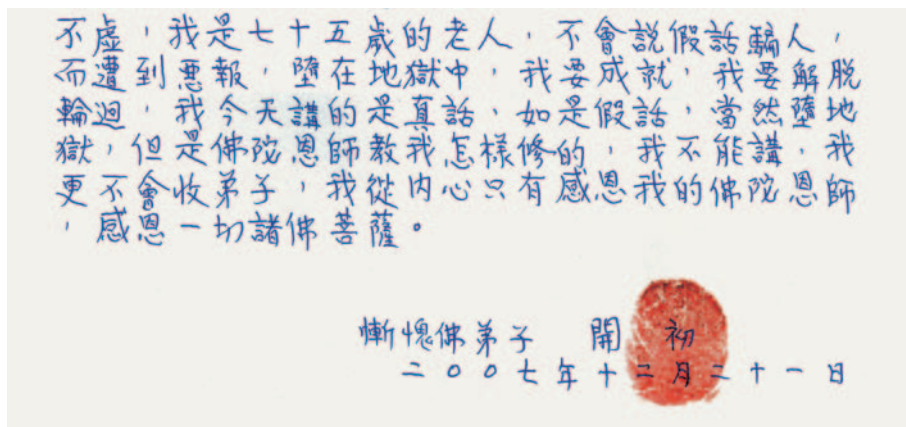 不虛，我是七十五歲的老人，不會說假話騙人，
而遭到惡報，墮在地獄中，我要成就，我要解脫
輪迴，我今天講的是真話，如是假話，當然墮地
獄，但是佛陀恩師教我怎樣修的，我不能講，我
更不會收弟子，我從內心只有感恩我的佛陀恩師
，感恩一切諸佛菩薩。
慚愧佛弟子　開　初
二００七年十二月二十一日